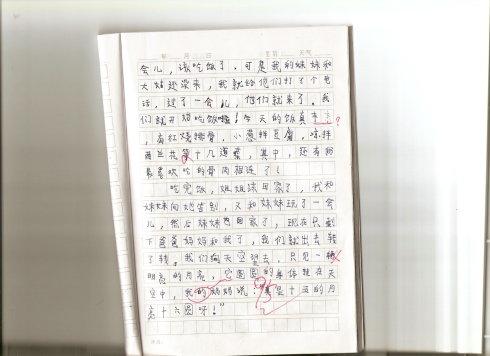 年 月 日 星期 天气
会儿，该吃饭了。可是我的妹妹和
大姑还没来，我就给他们打了个电
话，过了一会儿，他们就来了。我
们就开始吃饭啦！今天的饭真丰
，有红烧排骨，小葱拌豆腐，凉拌
西兰花等十几道菜，其中，还有我
最喜欢吃的骨肉相连了！
吃完饭，姐姐该回家了，我和
妹妹向她告别，又和妹妹玩了一会
儿，然后妹妹也回家了，现在只剩
下爸爸妈妈和我了，我们就出去转
了转。我们向天空望去，只见一轮
明亮的月亮，它圆圆的身体挂在天
空中，我的妈妈说："真是十五的月
亮十六圆呀！"